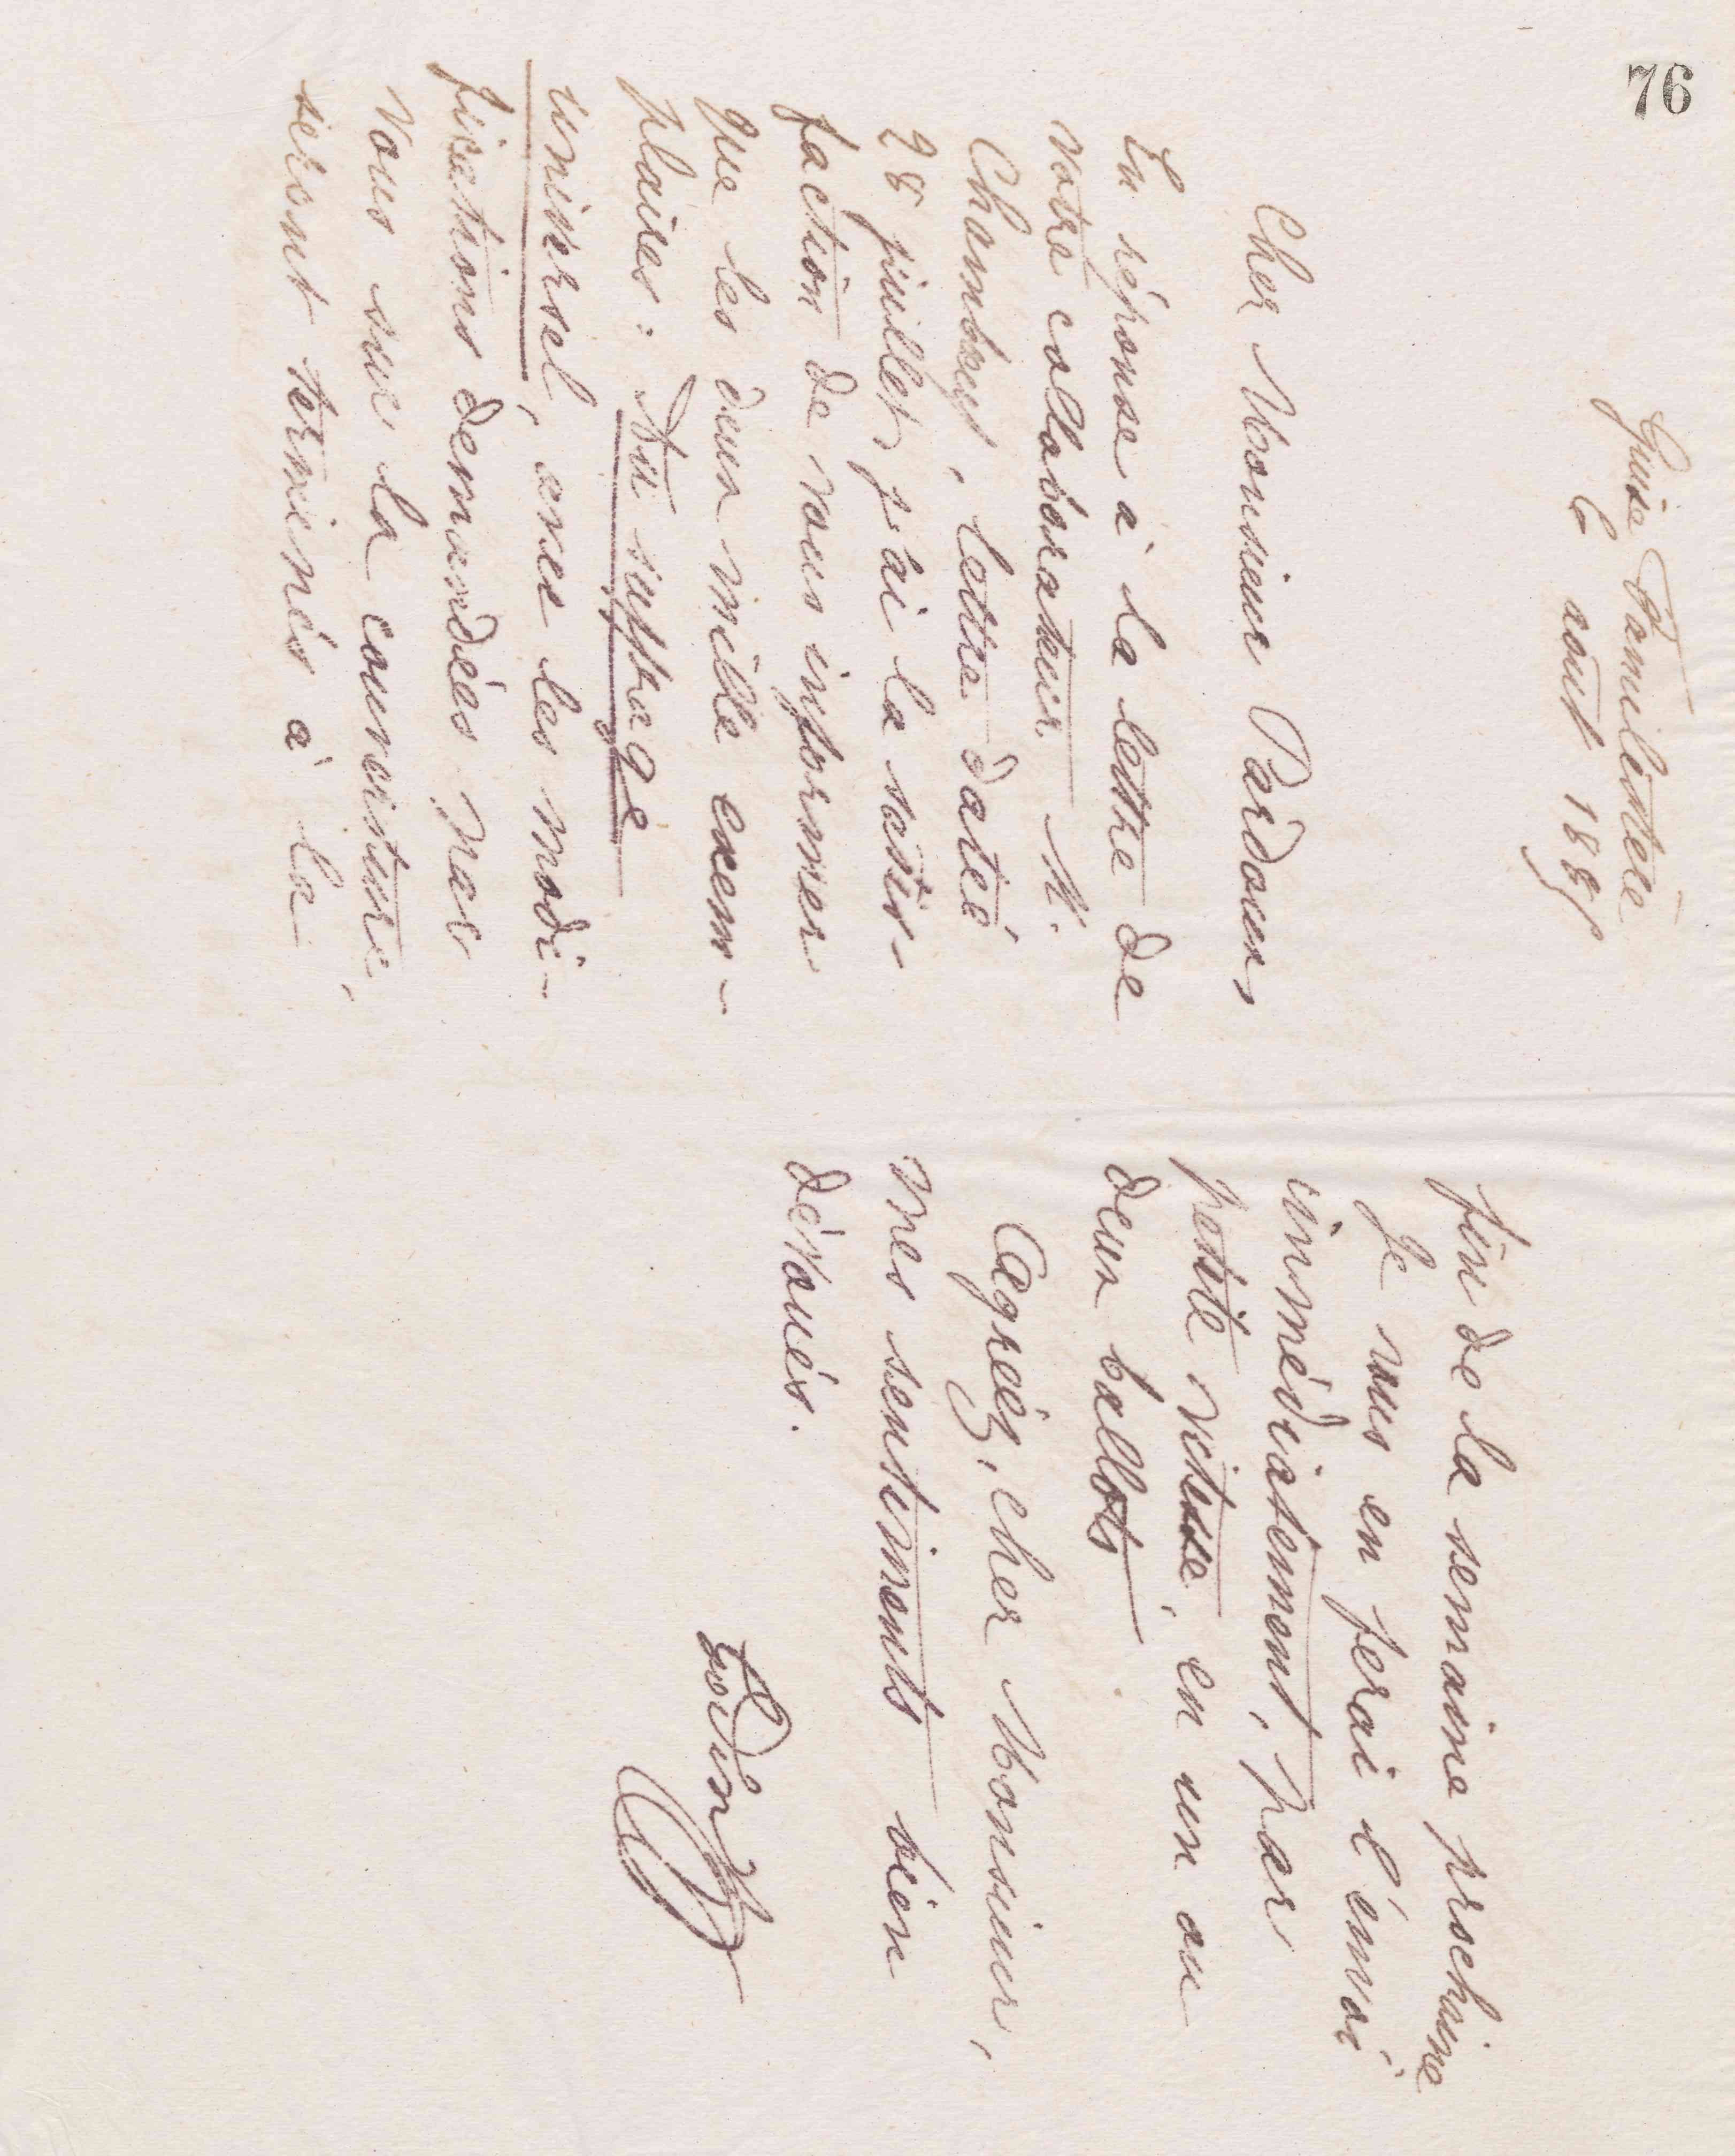 76
Guise Familistère
6 août 1885
Cher Monsieur Pardoux,
En réponse à la lettre de
votre collaborateur M.
lettre datée
28 juillet, j'ai la satis-
faction de vous informer
que les deux mille exem-
plaires : Du suffrage
universel, avec les modi-
fications demandées par
vous sur la couverture,
seront terminés à la
fin de la semaine prochaine
Je vous en ferai l'envoi
immédiatement, par
petite vitesse, en un ou
deux ballots
Agréez, cher Monsieur,
mes sentiments bien
dévoués.
Godin